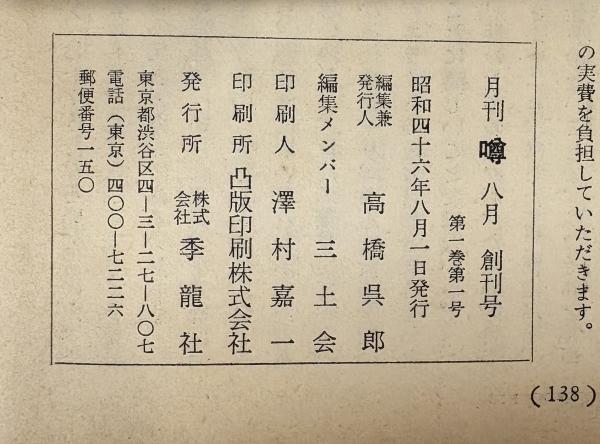 の実費を負担していただきます。
月刊 噂 八月 創刊号
第一巻第一号
昭和四十六年八月一日発行
編集兼発行人 高橋呉郎
編集メンバー 三土会
印刷人 澤村嘉一
印刷所 凸版印刷株式会社
発行所 株式会社 季龍社
東京都渋谷区四―三―二七―八〇七
電話（東京）四〇〇―七二二六
郵便番号一五〇
(138)